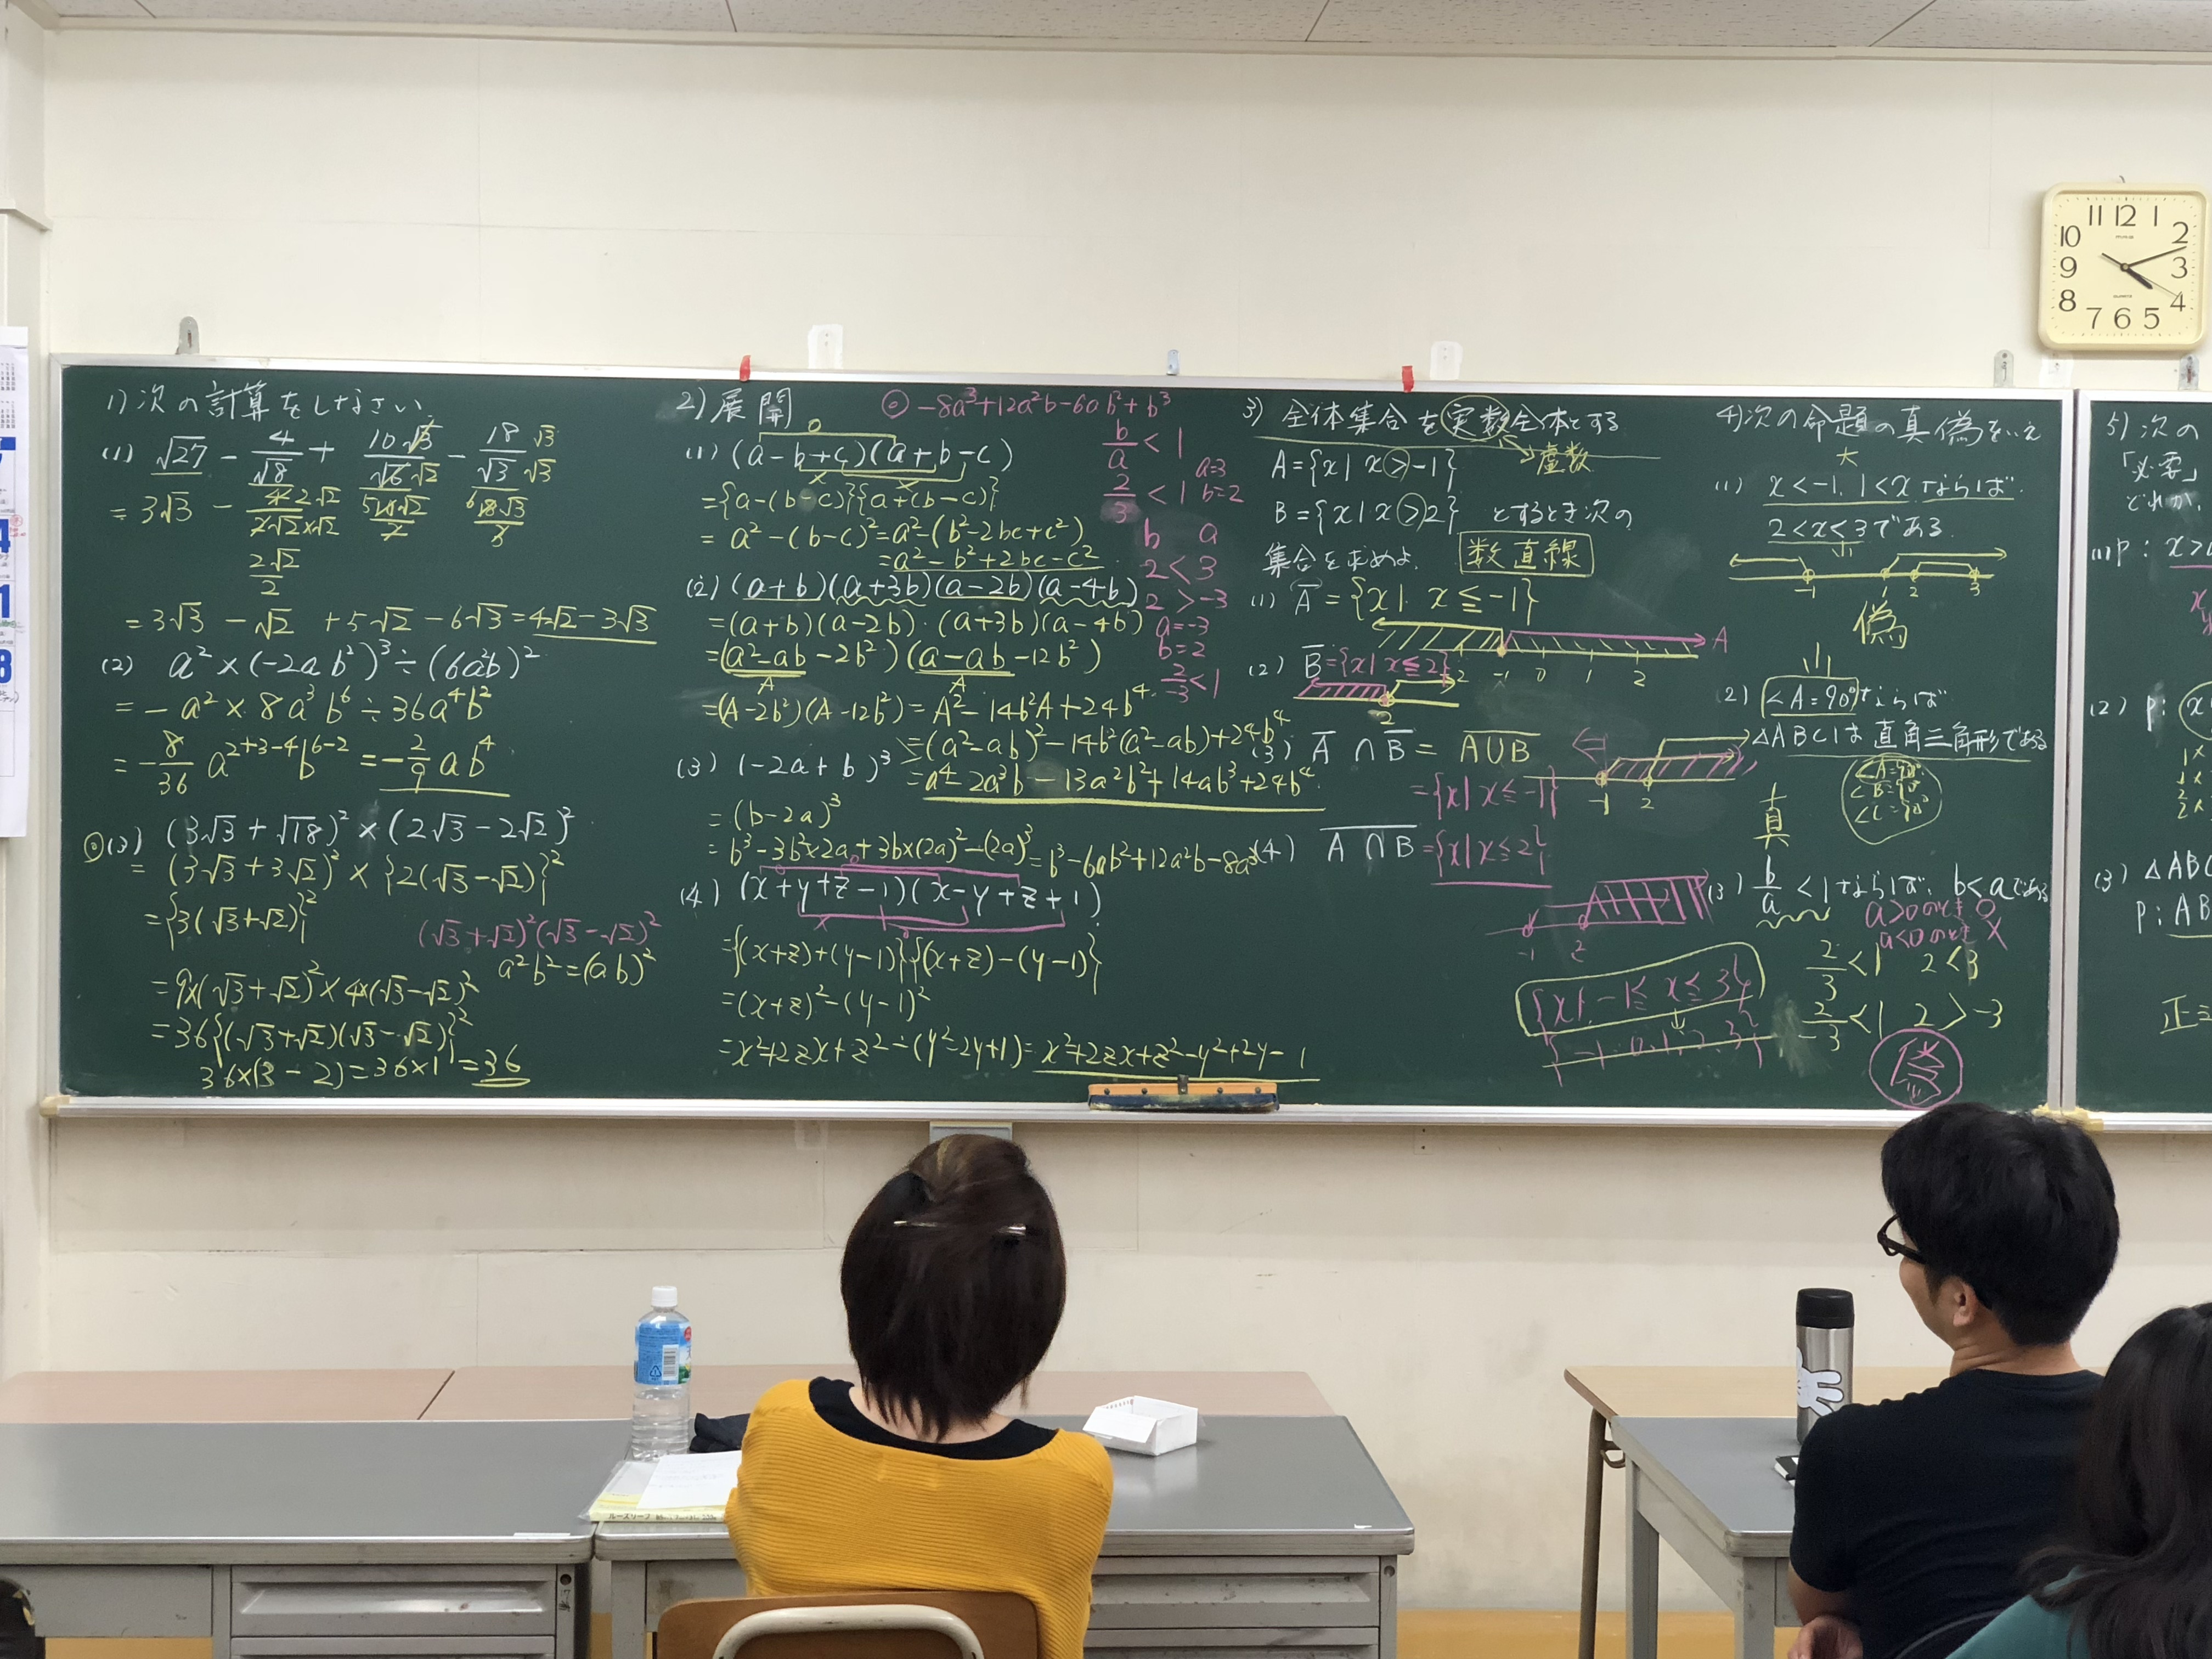 1) 次の計算をしなさい
(1) √27 - 4/√8 + 10√3/√6 - 18/√3
= 3√3 -
2√2/2
= 3√3 - √2 + 5√2 - 6√3 = 4√2 - 3√3
(2) a² × (-2ab²)³ ÷ (6a²b)²
= -a² × 8a³b⁶ ÷ 36a⁴b²
= -8/36 a²⁺³⁻⁴b⁶⁻² = -2/9 ab⁴
◎(3) (3√3 + √18)² × (2√3 - 2√2)²
= (3√3 + 3√2)² × {2(√3 - √2)}²
= {3(√3+√2)}²
(√3+√2)²(√3-√2)²
a²b² = (ab)²
= 9×(√3+√2)² × 4×(√3-√2)²
= 36{(√3+√2)(√3-√2)}²
36×(3-2) = 36×1 = 36
2) 展開
◎ -8a³+12a²b-6ab²+b³
(1) (a-b+c)(a+b-c)
= {a-(b-c)}{a+(b-c)}
= a²-(b-c)² = a²-(b²-2bc+c²)
= a²-b²+2bc-c²
(2) (a+b)(a+3b)(a-2b)(a-4b)
= (a+b)(a-2b)・(a+3b)(a-4b)
= (a²-ab-2b²)(a-ab-12b²)
A A
= (A-2b²)(A-12b²) = A²-14b²A+24b⁴
= (a²-ab)²-14b²(a²-ab)+24b⁴
= a⁴-2a³b-13a²b²+14ab³+24b⁴
(3) (-2a+b)³
= (b-2a)³
= b³-3b²×2a+3b×(2a)²-(2a)³ = b³-6ab²+12a²b-8a³
(4) (x+y+z-1)(x-y+z+1)
= {(x+z)+(y-1)}{(x+z)-(y-1)}
= (x+z)²-(y-1)²
= x²+2zx+z²-(y²-2y+1) = x²+2zx+z²-y²+2y-1
b/a < 1
a=3
2/3 < 1 b=2
b a
2 < 3
2 > -3
a=-3
b=2
2/-3 < 1
3) 全体集合を実数全体とする
→虚数
A={x| x>-1}
B={x| x>2} とするとき次の
集合を求めよ. 数直線
(1) A̅ = {x| x≦-1}
A
-1 0 1 2
(2) B̅={x| x≦2}
2
(3) A̅ ∩ B̅ = A∪B
-1 2
={x| x≦-1}
(4) A∩B={x| x≦2}
-1 2
{x| -1≦x≦3}
{-1, 0, 1, 2, 3}
4) 次の命題の真偽をいえ
(1) x<-1, 1<xならば
2<x<3である
-1 1 2 3
偽
(2) ∠A=90°ならば
△ABCは直角三角形である
∠A=90°
∠B=90°
∠C=90°
真
(3) b/a < 1ならば, b<aである
a>0のとき ○
a<0のとき ×
2/3 < 1 2<3
2/-3 < 1 2>-3
偽
5) 次の
「必要」
どれか.
(1) p: x>
(2) p:
(3) △ABC
p: AB
正三
11 12 1
10 2
9 3
8 4
7 6 5
ルーズリーフ